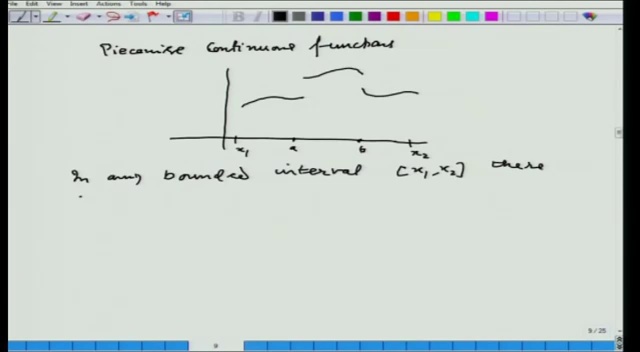 File Edit View Insert Actions Tools Help
Piecewise Continuous functions
x₁ a b x₂
In any bounded interval [x₁, x₂] there
9 / 25
9